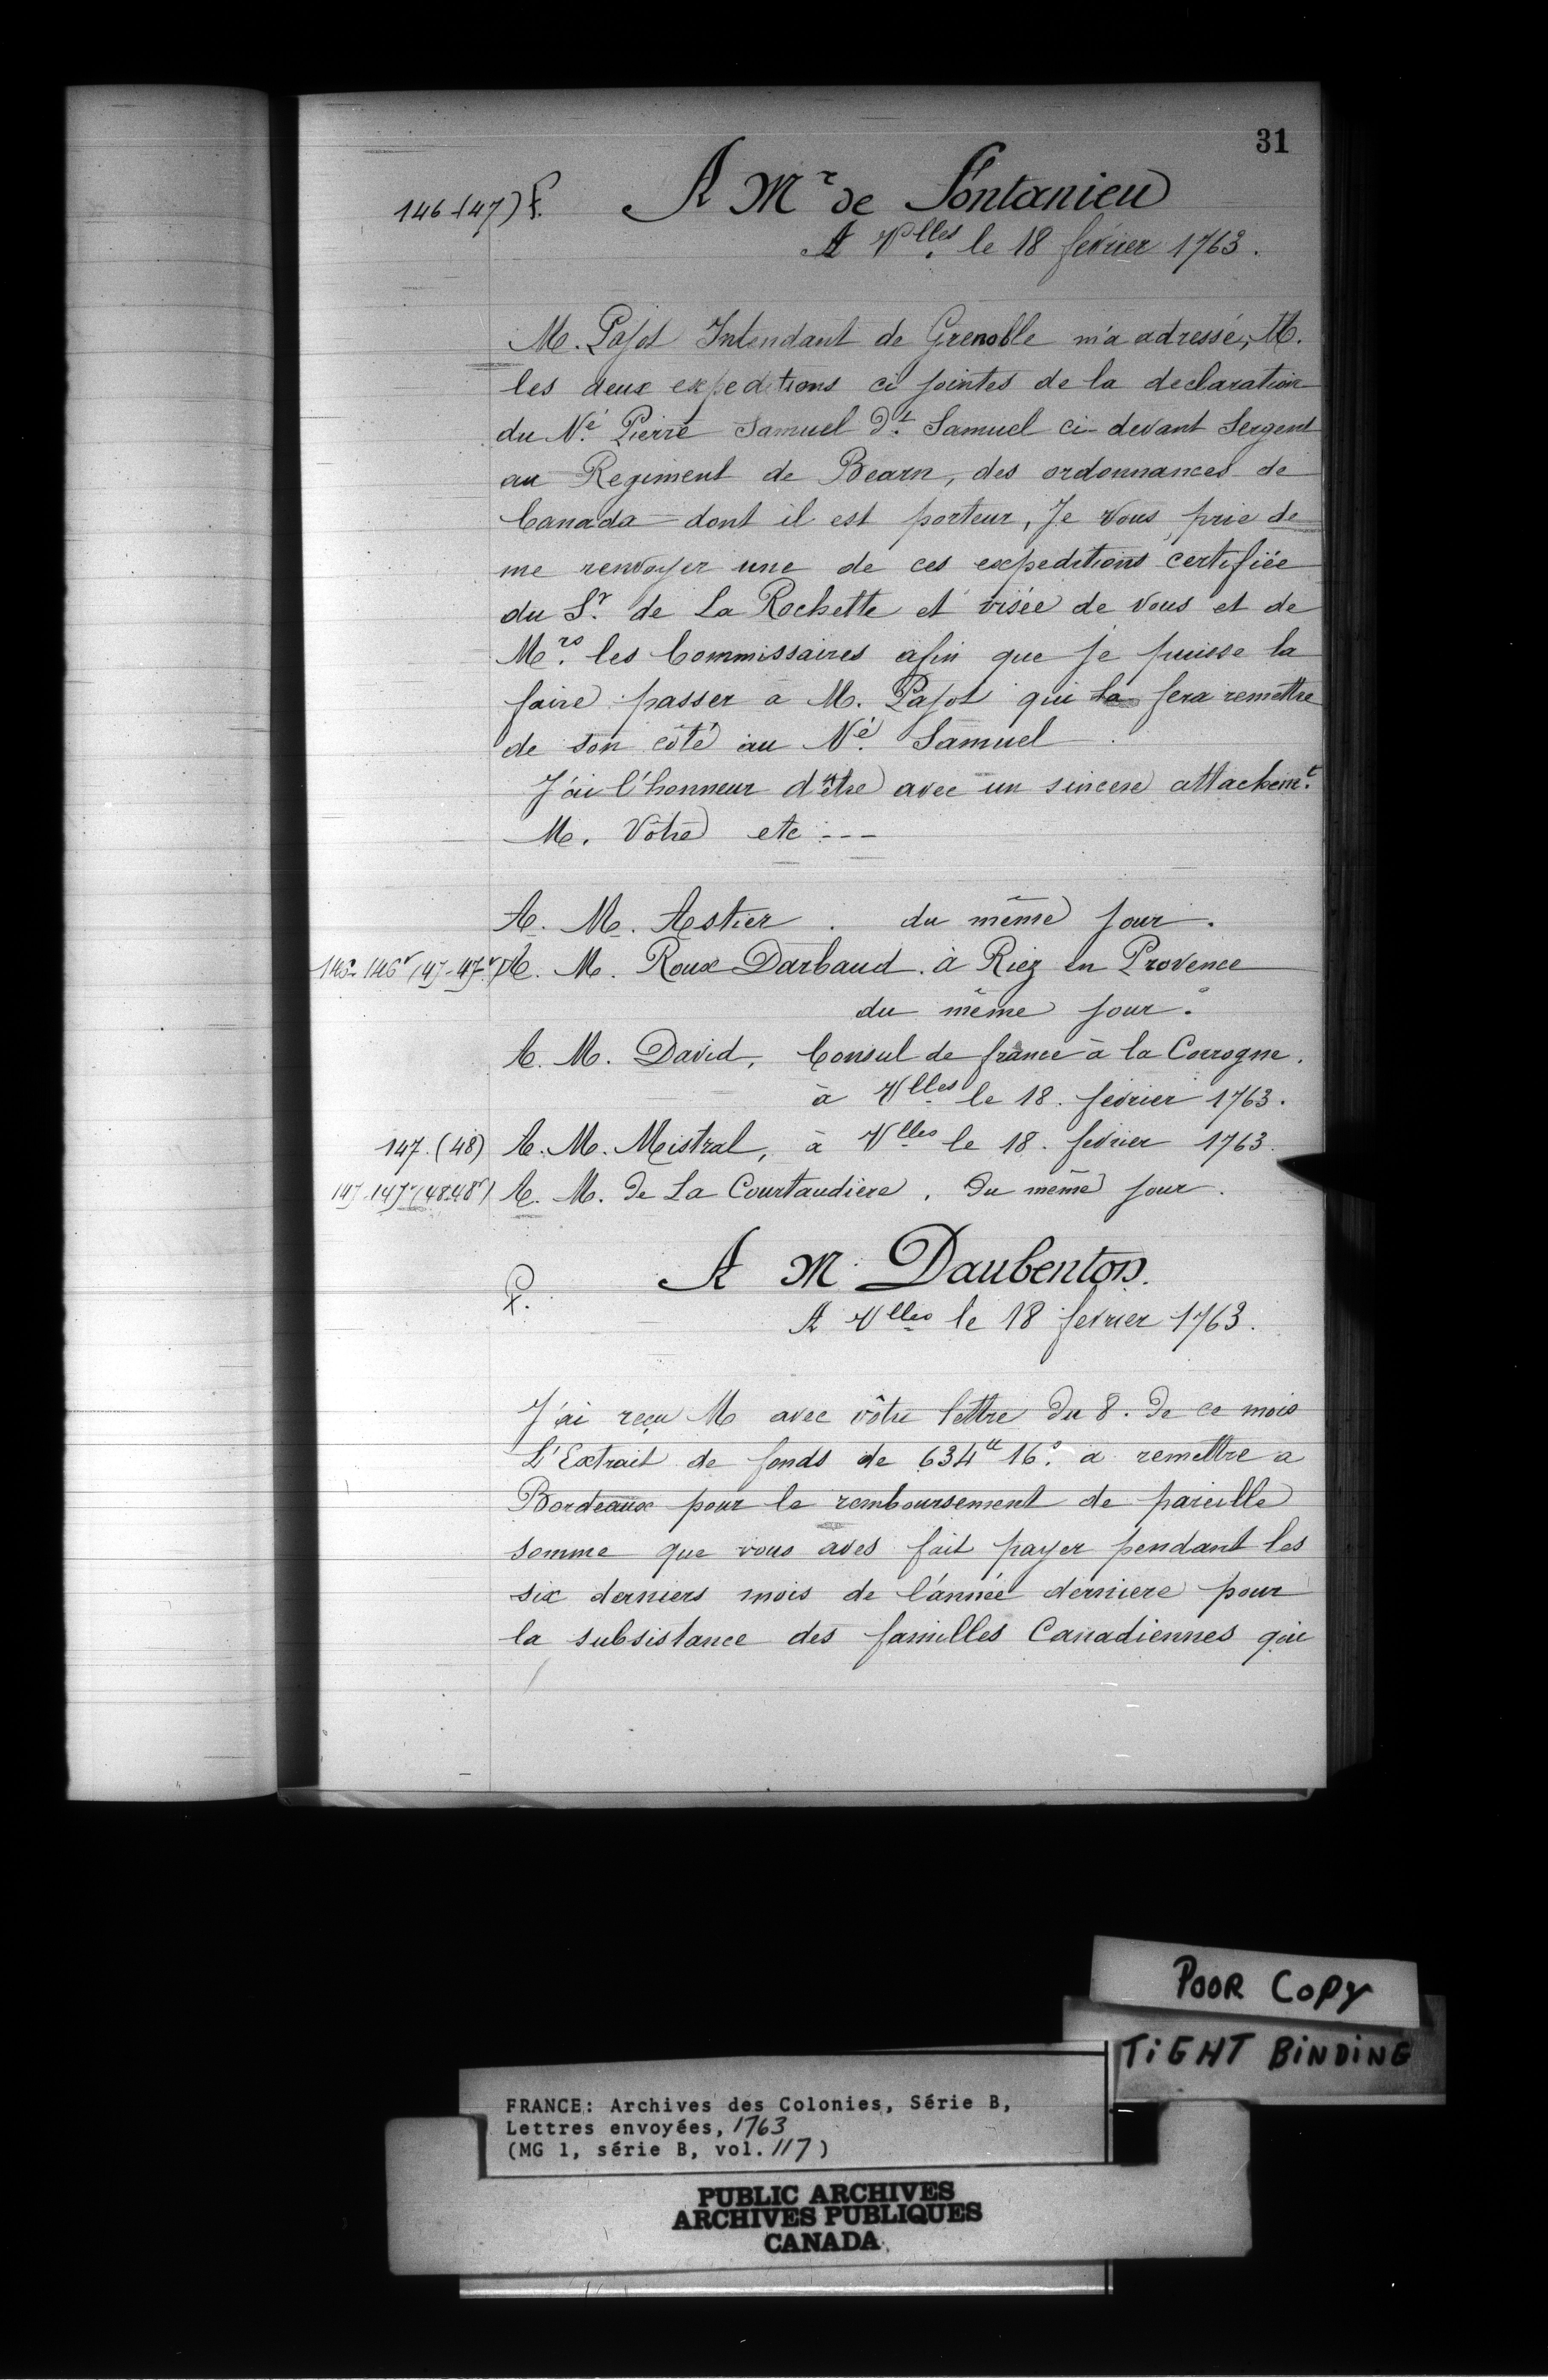 31
146-(47) P. A Mr de Fontanieu
A Vlles. le 18 fevrier 1763.
M. Pajot Intendant de Grenoble m'a adressé, M.
les deux expeditions ci jointes de la declaration
du Né. Pierre Samuel dt. Samuel ci-devant Sergent
au Regiment de Bearn, des ordonnances de
Canada dont il est porteur, Je vous prie de
me renvoyer une de ces expeditions certifiée
du Sr. de La Rochette et visée de vous et de
Mrs. les Commissaires afin que je puisse la
faire passer a M. Pajot qui la fera remettre
de son côté au Né. Samuel
J'ai l'honneur d'être avec un sincere attachemt.
M. Vôtre etc ---
A. M. Astier . du même jour.
146-146v (47-47v) A. M. Roux Darbaud. à Riez en Provence
du même jour.
A. M. David, Consul de france à la Corrogne.
à Vlles le 18. fevrier 1763.
147. (48) A. M. Mistral, à Vlles le 18. fevrier 1763.
147-147v (48-48v) A. M. de La Courtaudiere. du même jour.
A M. Daubenton.
P. A Vlles le 18 fevrier 1763.
J'ai reçu M avec vôtre lettre du 8. de ce mois
L'Extrait de fonds de 634tt 16s. a remettre a
Bordeaux pour le remboursement de pareille
somme que vous aves fait payer pendant les
six derniers mois de l'année derniere pour
la subsistance des familles Canadiennes qui
POOR COPY
TIGHT BINDING
FRANCE: Archives des Colonies, Série B,
Lettres envoyées, 1763
(MG 1, série B, vol. 117)
PUBLIC ARCHIVES
ARCHIVES PUBLIQUES
CANADA